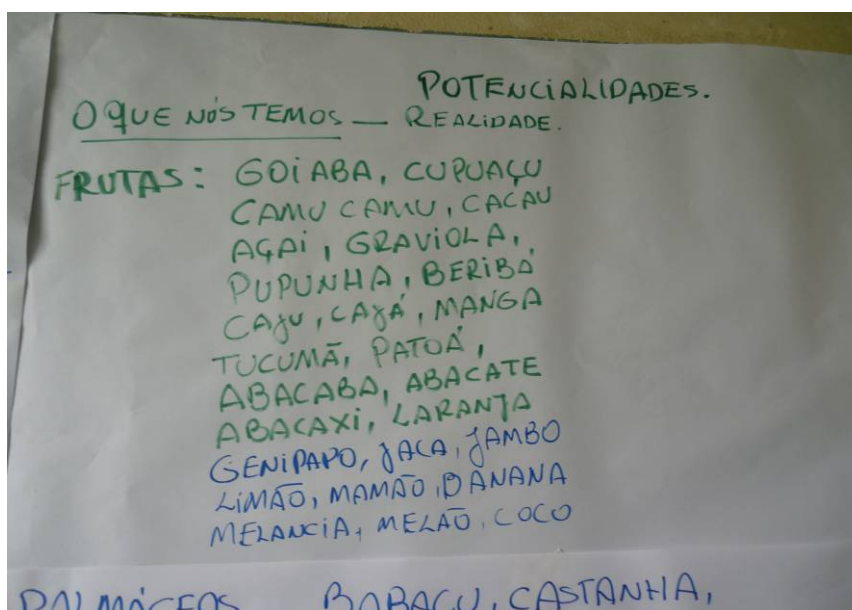 POTENCIALIDADES.
O QUE NÓS TEMOS — REALIDADE.
FRUTAS: GOIABA, CUPUAÇU
CAMU CAMU, CACAU
AÇAI, GRAVIOLA,
PUPUNHA, BERIBÁ
CAJU, CAJÁ, MANGA
TUCUMÃ, PATOÁ,
ABACABA, ABACATE
ABACAXI, LARANJA
GENIPAPO, JACA, JAMBO
LIMÃO, MAMÃO, BANANA
MELANCIA, MELÃO, COCO
PALMÁCEOS BABAÇU, CASTANHA,